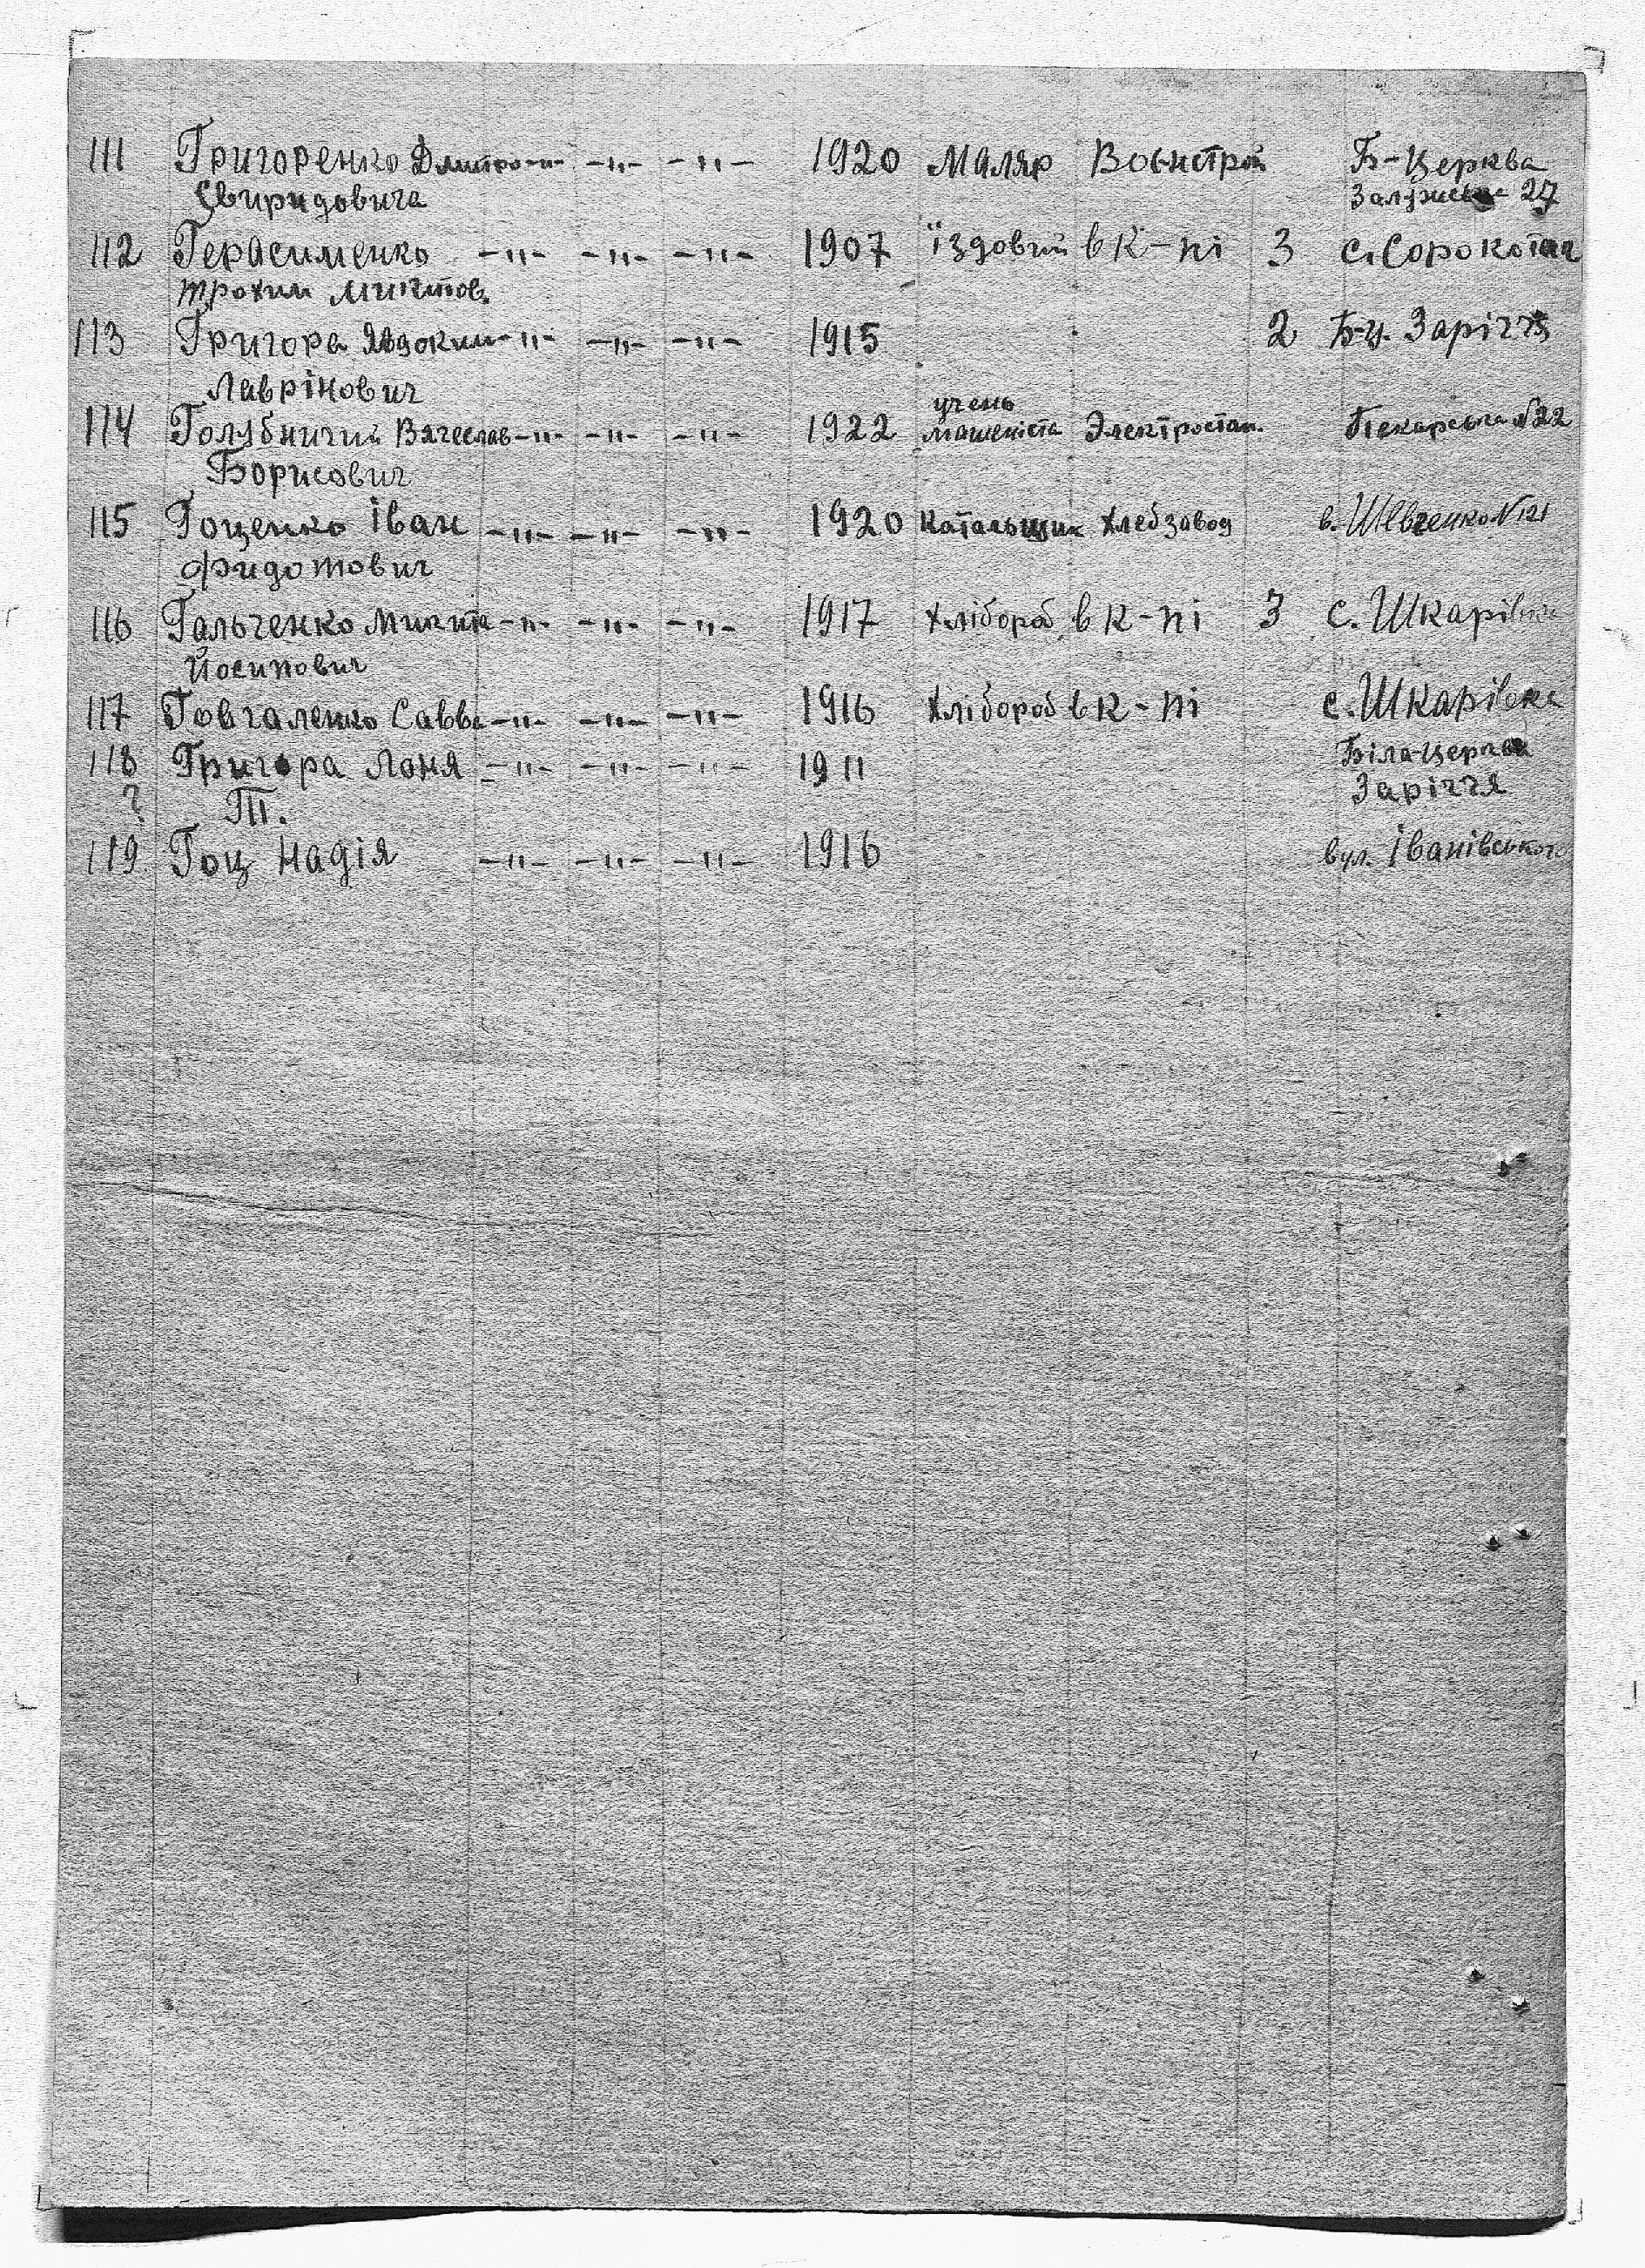 111 Григоренко Дмитро -"- -"- -"- 1920 Маляр Военстрой Б-Церква
Свиридовича 27
112 Герасименко -"- -"- -"- 1907 їздовий в к-пі 3 с. Сорокотяг
Трохим Микитов.
113 Григора Явдоким -"- -"- -"- 1915 2 Б-Ц. Заріччя
Лаврінович
учень
114 Голубничий Вячеслав -"- -"- -"- 1922 машеніста Электростан. Пекарська №22
Борисович
115 Гоценко Іван -"- -"- -"- 1920 Катальщик Хлебзавод в. Шевченко №121
Фидотович
116 Гальченко Микита -"- -"- -"- 1917 Хлібороб в к-пі 3 с. Шкарівка
Йосипович
117 Говгаленко Савва -"- -"- -"- 1916 Хлібороб в к-пі с. Шкарівка
118 Григора Лоня -"- -"- -"- 1911 Біла-Церква
? П. Заріччя
119. Гоц Надія -"- -"- -"- 1916 вул. Іванівського